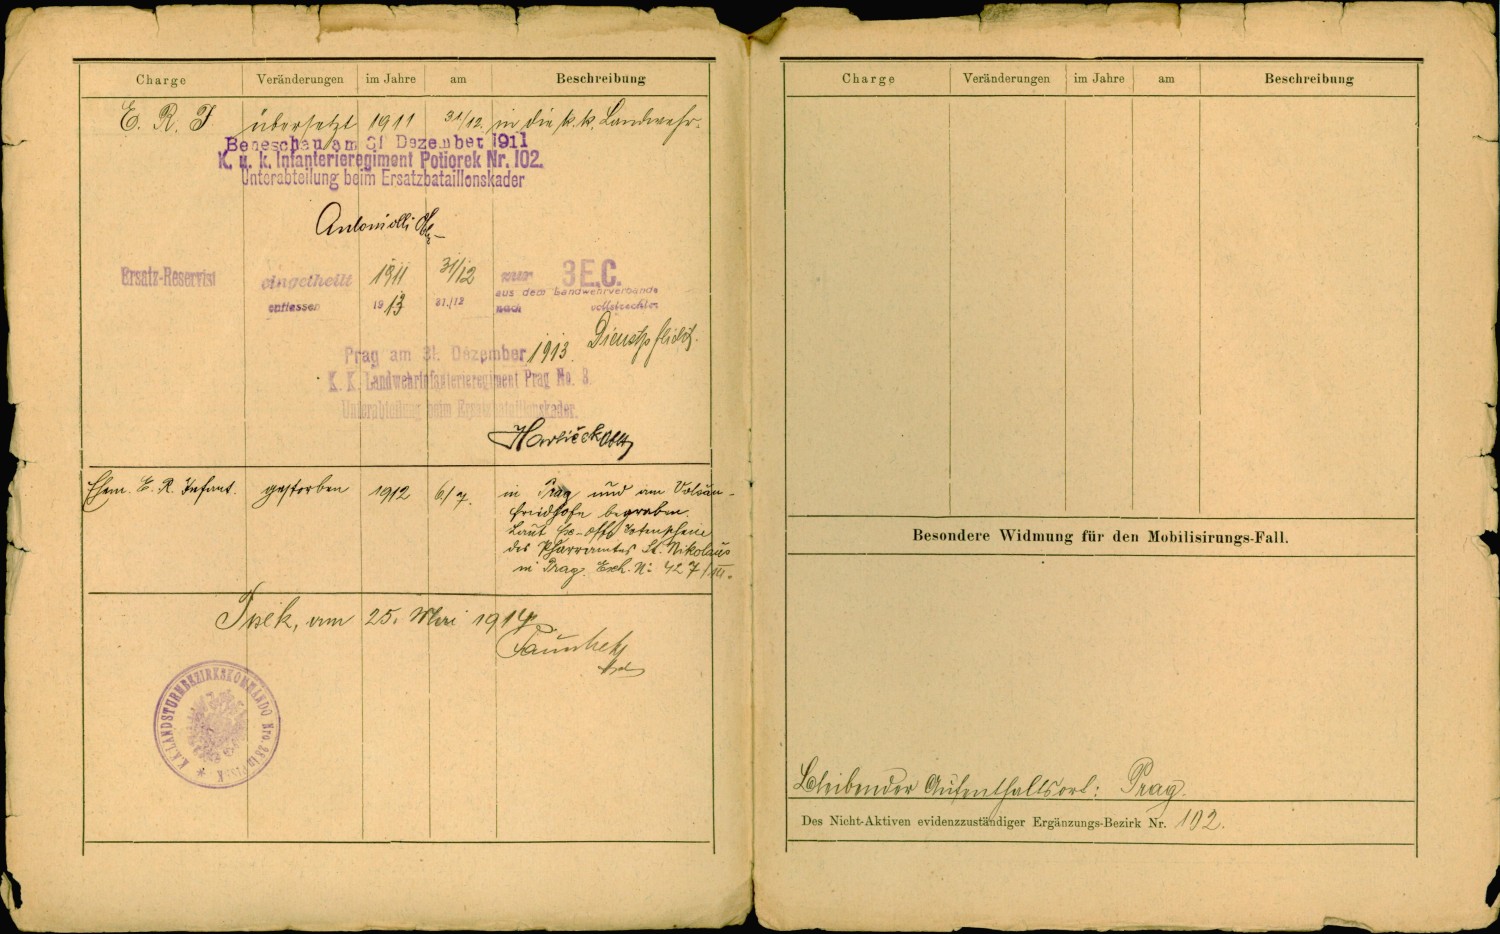 Charge Veränderungen im Jahre am Beschreibung
E. R. I übersetzt 1911 31/12. in die k.k. Landwehr.
Beneschau am 31 Dezember 1911
K. u. k. Infanterieregiment Potiorek Nr. 102.
Unterabteilung beim Ersatzbataillonskader
Antoniolli
Ersatz-Reservist eingetheilt 1911 31/12 zur 3 E.C.
entlassen 1913 31./12 aus dem Landwehrverbande
nach vollstreckter
Dienstpflicht.
Prag am 31. Dezember 1913.
K. K. Landwehrinfanterieregiment Prag No. 8.
Unterabteilung beim Ersatzbataillonskader.
Havlíček Oblt
Ehem. E. R. Infant. gestorben 1912 6/7. in Prag und am Volšan-
friedhofe begraben.
Laut Ex-offo Totenscheine
des Pfarramtes St. Nikolaus
in Prag. Exh. N: 427/III.
Pisek, am 25. Mai 1914
K.K. LANDSTURMBEZIRKSKOMMANDO Nro. 28 in PISEK
Charge Veränderungen im Jahre am Beschreibung
Besondere Widmung für den Mobilisirungs-Fall.
Bleibender Aufenthaltsort: Prag.
Des Nicht-Aktiven evidenzzuständiger Ergänzungs-Bezirk Nr. 102.